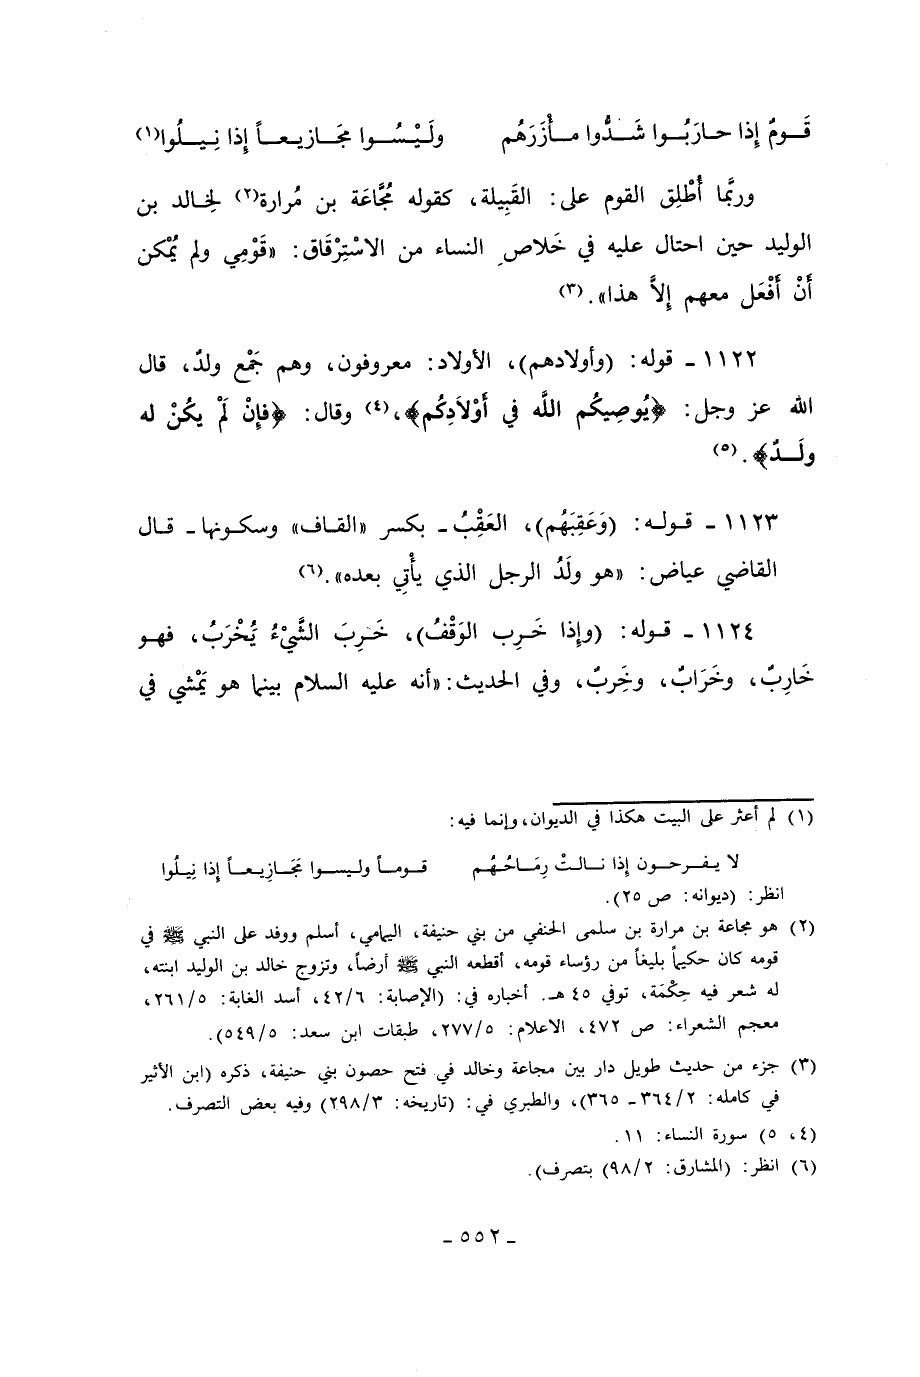 قَــومٌ إِذا حـارَبُــوا شَــدُّوا مــأْزَرَهُم ولَيْسُــوا مجَـازيـعــاً إِذا نِـيـلُوا(١)
وربَّما أُطْلِق القوم على: القَبِيلة، كقوله مُجَّاعَة بن مُرارة(٢) لخالد بن
الوليد حين احتال عليه في خَلاصِ النساء من الاسْتِرْقَاق: «قَوْمِي ولم يُمْكن
أَنْ أَفْعَل معهم إِلاَّ هذا».(٣)
١١٢٢ - قوله: (وأولادهم)، الأولاد: معروفون، وهم جَمْع ولدٌ، قال
الله عز وجل: ﴿يُوصِيكُم اللَّه في أَوْلَادِكُم﴾،(٤) وقال: ﴿فإِنْ لَمْ يكُنْ له
ولَــدٌ﴾.(٥)
١١٢٣ - قـولـه: (وَعَقِبَهُم)، العَقِبُ - بكسر «القـاف» وسكـونهـا - قـال
القاضي عياض: «هو ولَدُ الرجل الذي يأْتِي بعده».(٦)
١١٢٤ - قـوله: (وإِذا خَـرِب الوَقْفُ)، خَـرِبَ الشَّيْءُ يَخْرَبُ، فهـو
خَارِبٌ، وخَرَابٌ، وخَرِبٌ، وفي الحديث: «أنه عليه السلام بينما هو يَمْشي في
(١) لم أعثر على البيت هكذا في الديوان، وإنما فيه:
لا يـفـرحـون إذا نـالـتْ رِمَـاحُـهُم قـومـاً وليسـوا مَجَـازِيـعـاً إذا نِيلُوا
انظر: (ديوانه: ص ٢٥).
(٢) هو مجاعة بن مرارة بن سلمى الحنفي من بني حنيفة، اليمامي، أسلم ووفد على النبي ﷺ في
قومه كان حكيماً بليغاً من رؤساء قومه، أقطعه النبي ﷺ أرضاً، وتزوج خالد بن الوليد ابنته،
له شعر فيه حِكْمَة، توفي ٤٥ هـ. أخباره في: (الإصابة: ٤٢/٦، أسد الغابة: ٢٦١/٥،
معجم الشعراء: ص ٤٧٢، الاعلام: ٢٧٧/٥، طبقات ابن سعد: ٥٤٩/٥).
(٣) جزء من حديث طويل دار بين مجاعة وخالد في فتح حصون بني حنيفة، ذكره (ابن الأثير
في كامله: ٣٦٤/٢ - ٣٦٥)، والطبري في: (تاريخه: ٢٩٨/٣) وفيه بعض التصرف.
(٤، ٥) سورة النساء: ١١.
(٦) انظر: (المشارق: ٩٨/٢) بتصرف).
- ٥٥٢ -